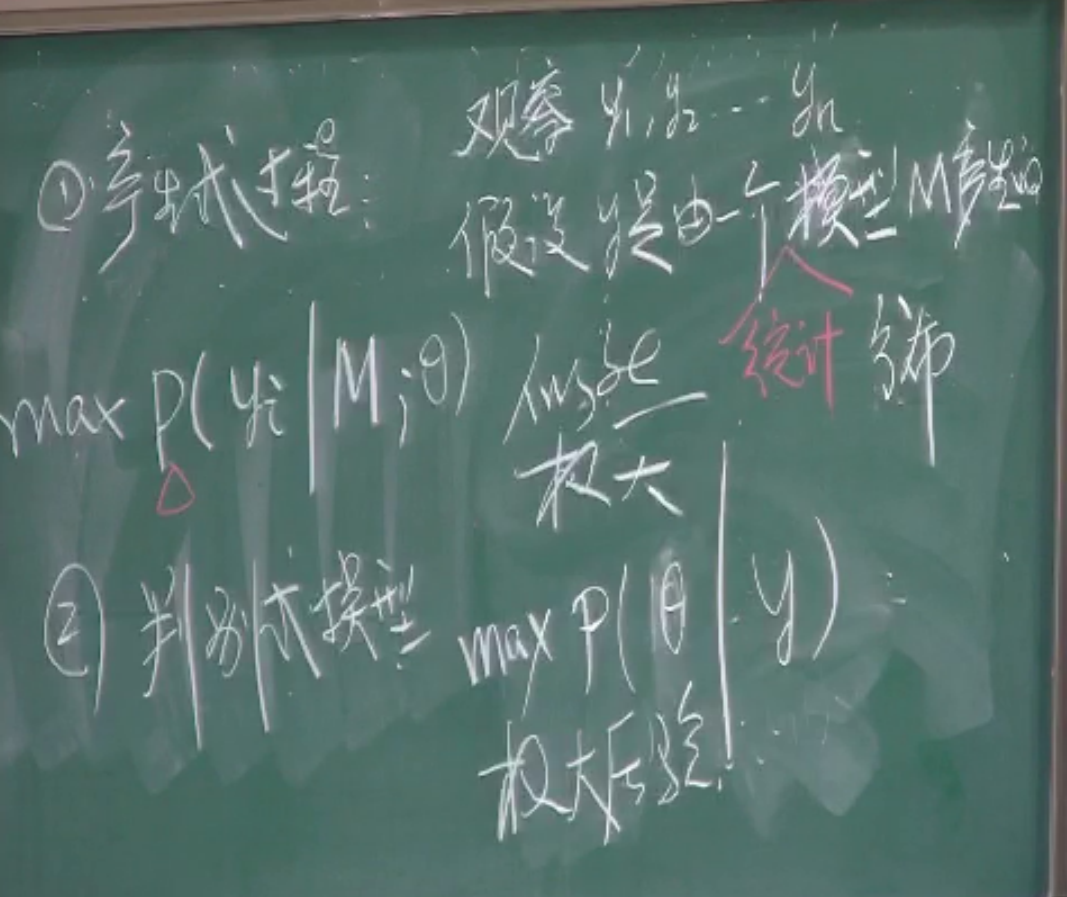 ①产生式过程: 观察 y₁, y₂ … yₙ
假设 y是由一个模型M产生的
统计 分布
max P(yᵢ|M;θ) 似然
极大
② 判别式模型 max P(θ|y)
极大后验